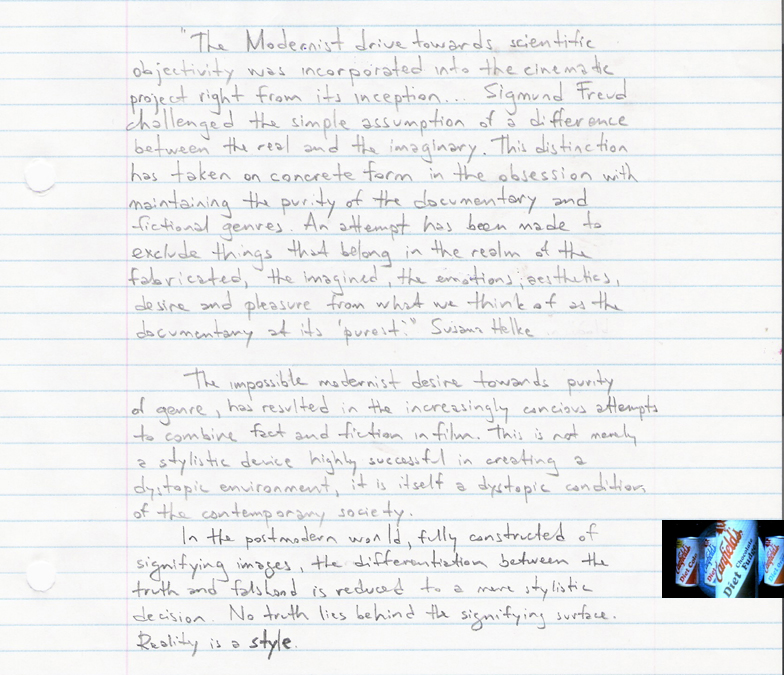 "The Modernist drive towards scientific
objectivity was incorporated into the cinematic
project right from its inception... Sigmund Freud
challenged the simple assumption of a difference
between the real and the imaginary. This distinction
has taken on concrete form in the obsession with
maintaining the purity of the documentary and
fictional genres. An attempt has been made to
exclude things that belong in the realm of the
fabricated, the imagined, the emotions, aesthetics,
desire and pleasure from what we think of as the
documentary at its 'purest'." Susana Helke
The impossible modernist desire towards purity
of genre, has resulted in the increasingly concious attempts
to combine fact and fiction in film. This is not merely
a stylistic device highly successful in creating a
dystopic environment, it is itself a dystopic condition
of the contemporary society.
In the postmodern world, fully constructed of
signifying images, the differentiation between the
truth and falshood is reduced to a mere stylistic
decision. No truth lies behind the signifying surface.
Reality is a style.
Canfield's
Diet Chocolate
Fudge